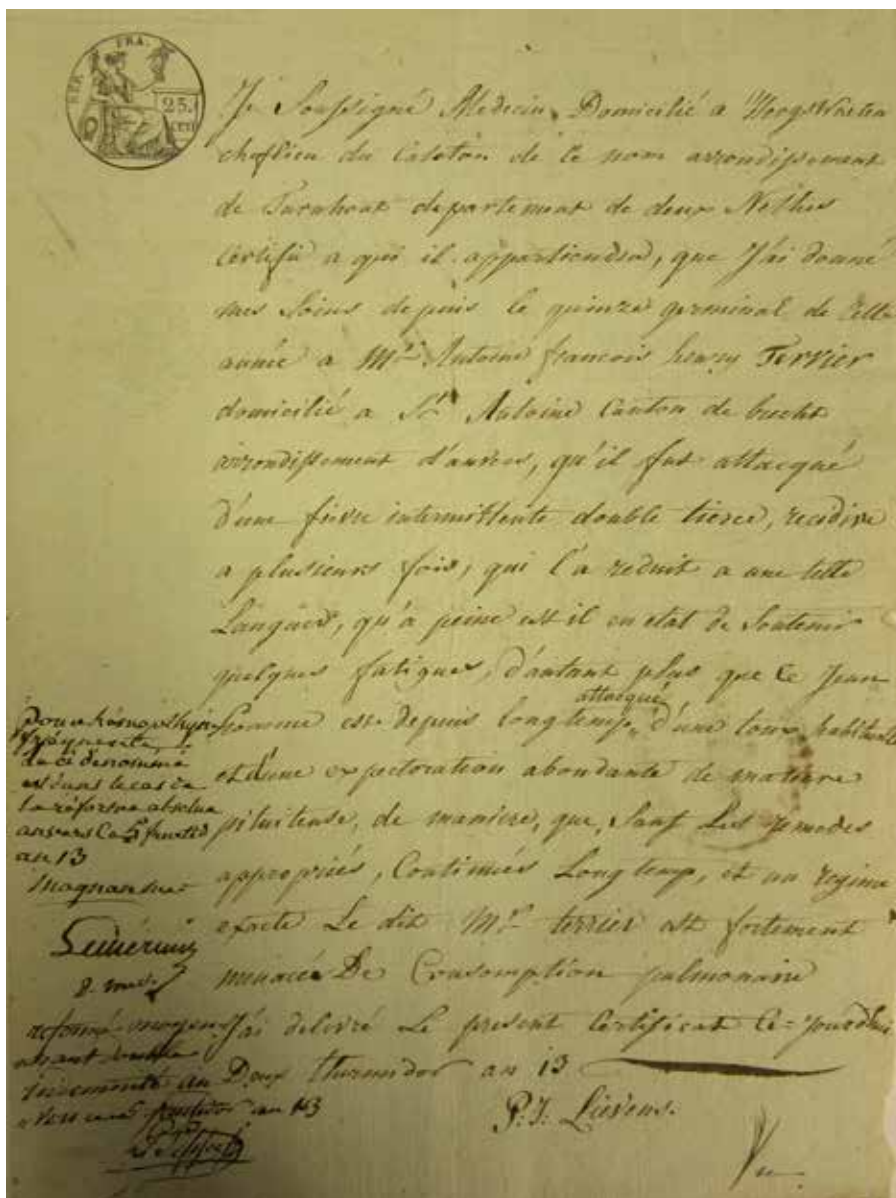 REP. FRA.
25.
CEN
Je Soussigné Medecin Domicilié a Hoogstraeten
cheflieu du Canton de ce nom arrondissement
de Turnhout departement de deux Nethes
Certifie a qui il appartiendra, que J'ai donné
mes Soins depuis le quinze germinal de cette
année a Mr. Antoine francois henry Terrier
domicilié a St. Antoine Canton de brecht
arrondissement d'anvers, qu'il fut attacqué
d'une fievre intermittente double tierce, recidive
a plusieurs fois, qui l'a reduit a une telle
Langueur, qu'a peine est il en etat de Soutenir
quelques fatigues, d'autant plus que Ce Jeun
homme est depuis longtemp attacqué d'une toux habituelle
et d'une expectoration abondante de matiere
pituiteuse, de maniere, que, Sauf Les remedes
appropriés, Continués Long temp, et un regime
exacte Le dit Mr. terrier est fortement
menacée De Consomption pulmonaire
J'ai delivré Le present Certificat Ce-jourdhui
Deux thermidor an 13
P. J. Lievens.
Vu
le ci denommé
est dans le cas de
la réforme absolue
anvers Ce 5 fructid
an 13
reformé moyen
ayant
indemnité
fructidor an 13